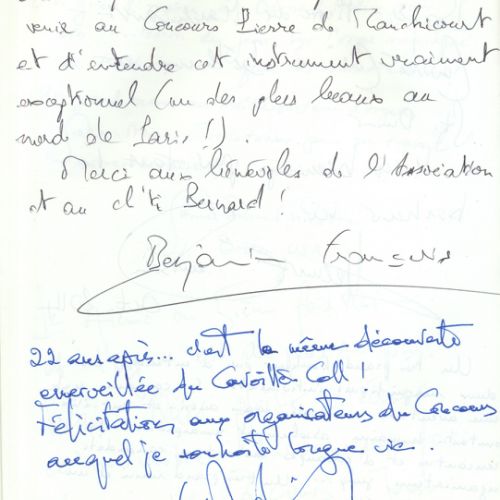 venir au Concours Pierre de Manchicourt
et d'entendre cet instrument vraiment
exceptionnel (un des plus beaux au
nord de Paris !) .
Merci aux bénévoles de l'Association
et au Bernard !
Benjamin François
22 ans après... c'est la même découverte
émerveillée du Cavaillé-Coll.
Félicitations aux organisateurs du Concours
auquel je souhaite longue vie .